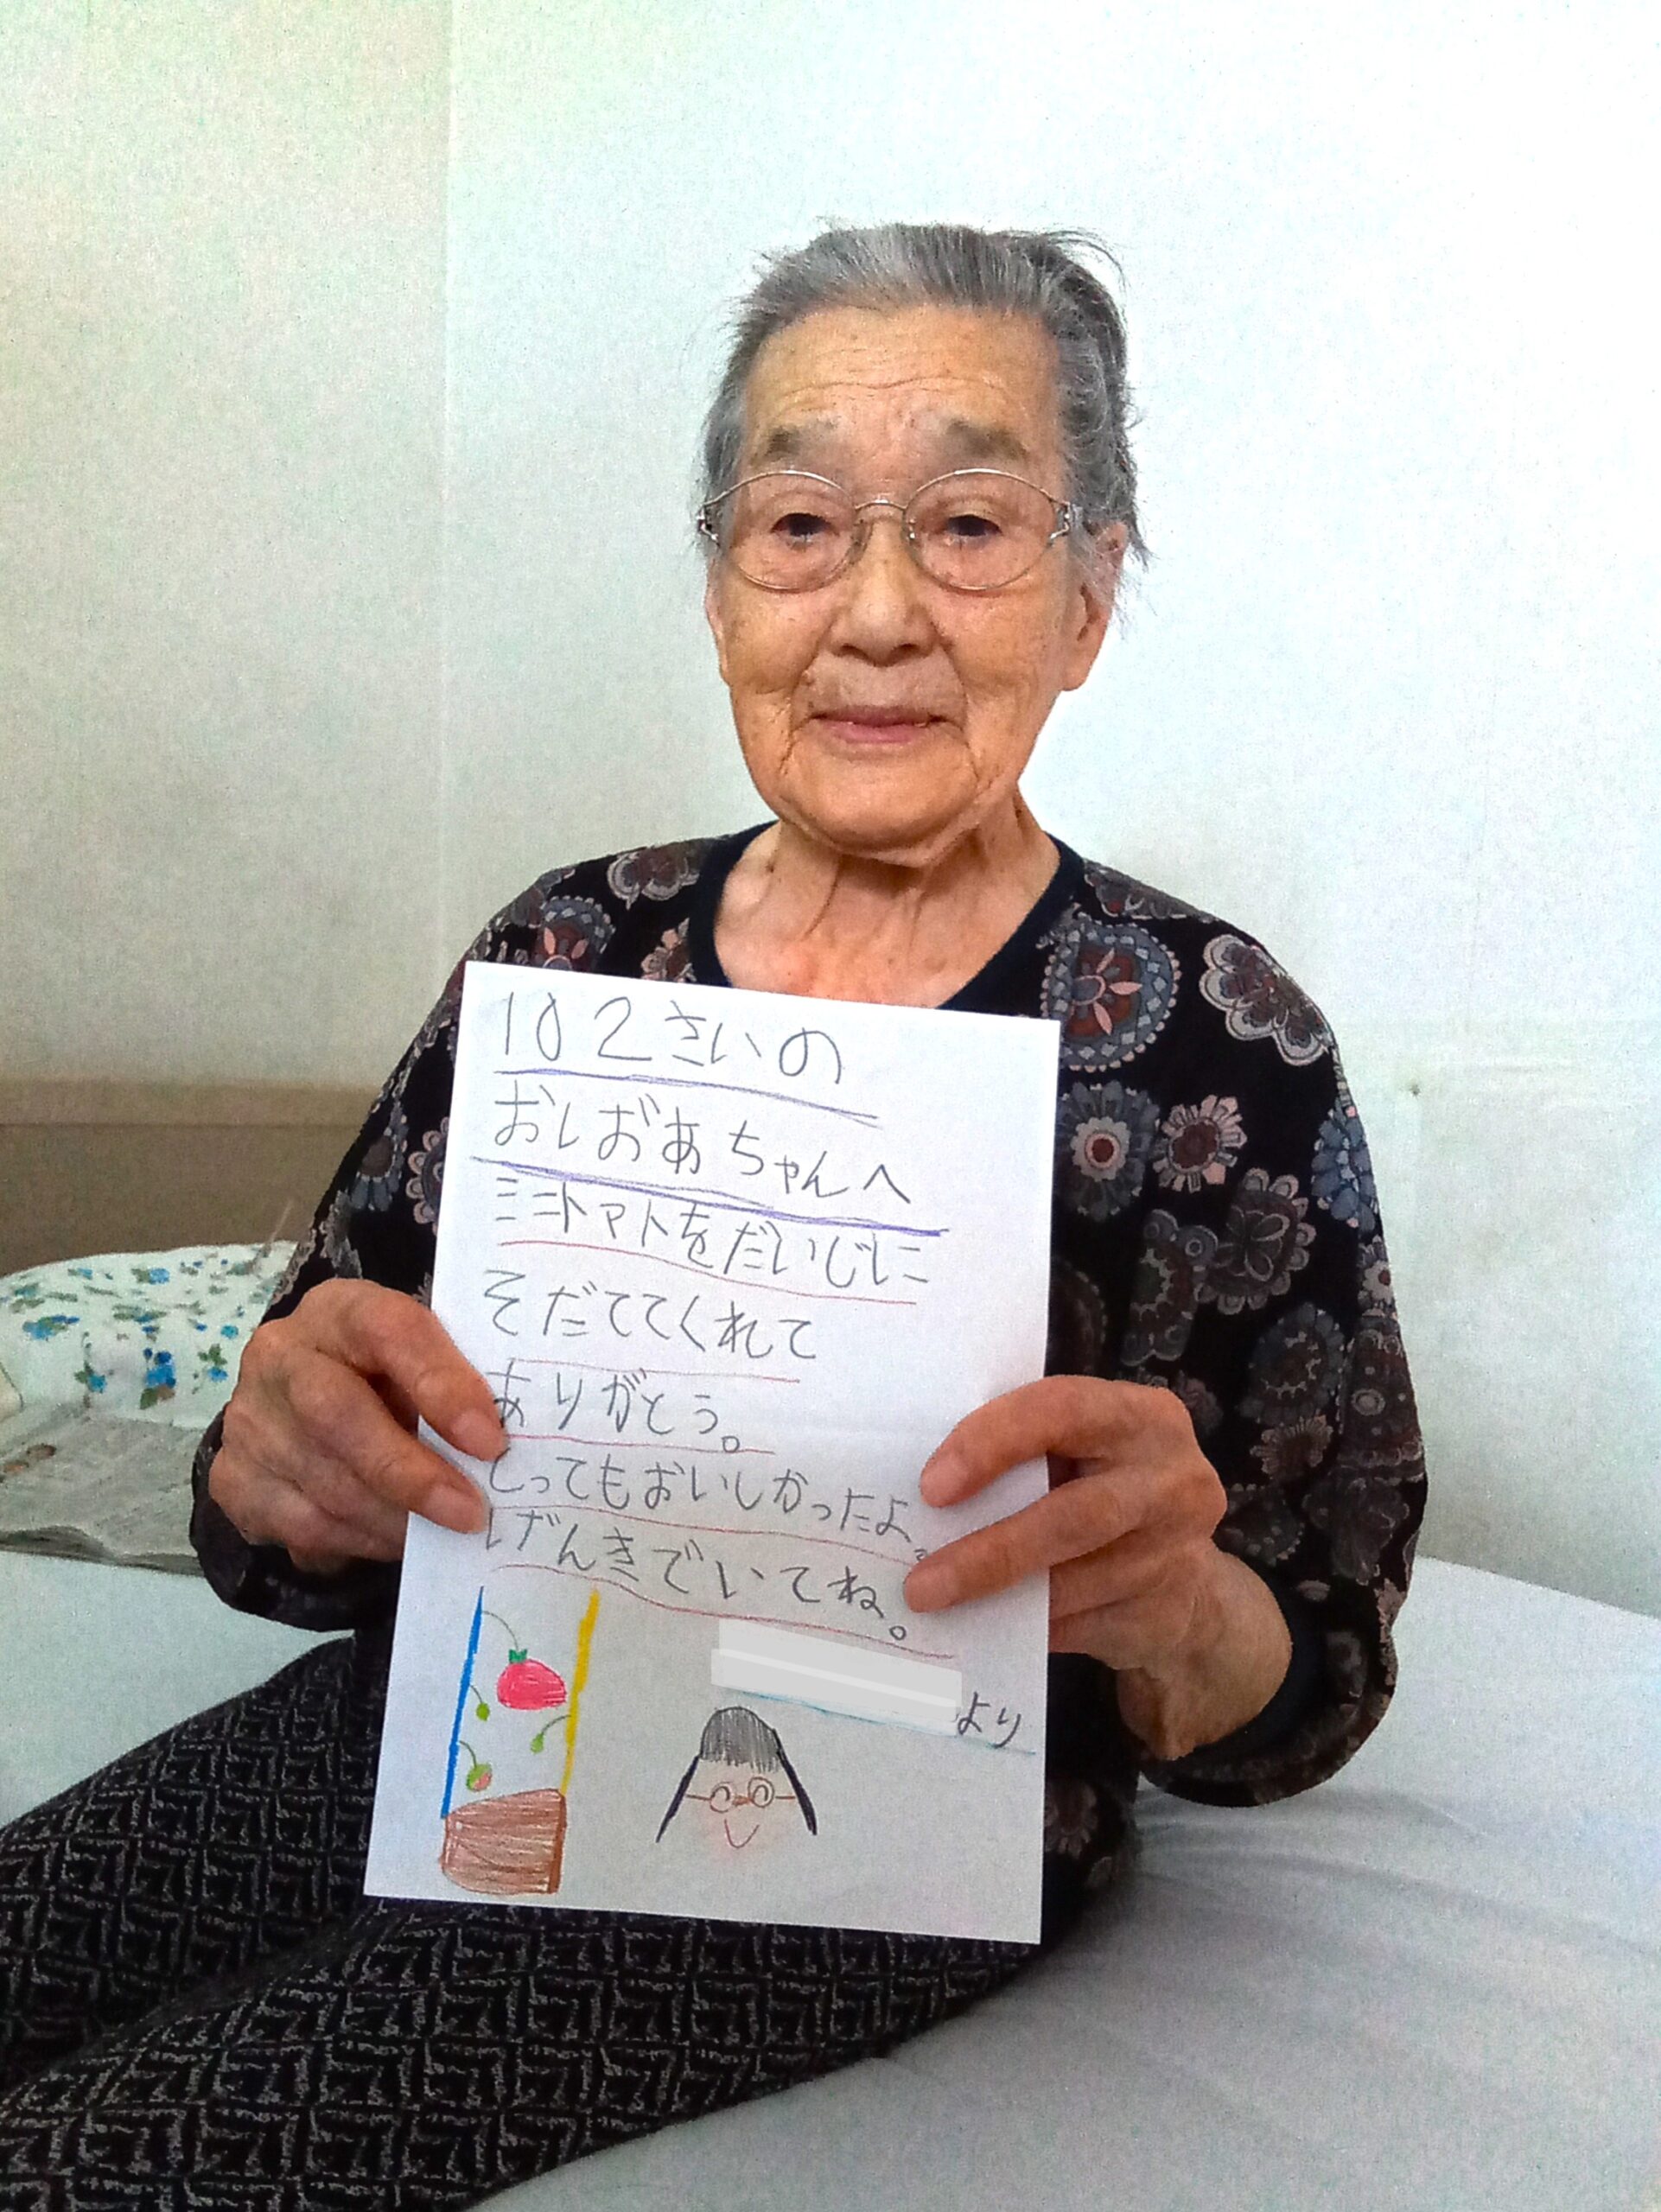 102さいの
おばあちゃんへ
ミニトマトをだいじに
そだててくれて
ありがとう。
とってもおいしかったよ。
げんきでいてね。
より